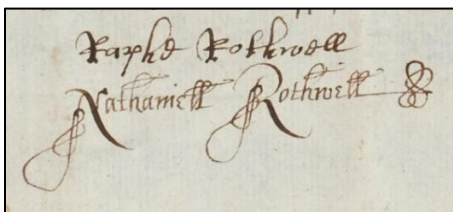 Raphe Rothwell
Nathaniell Rothwell